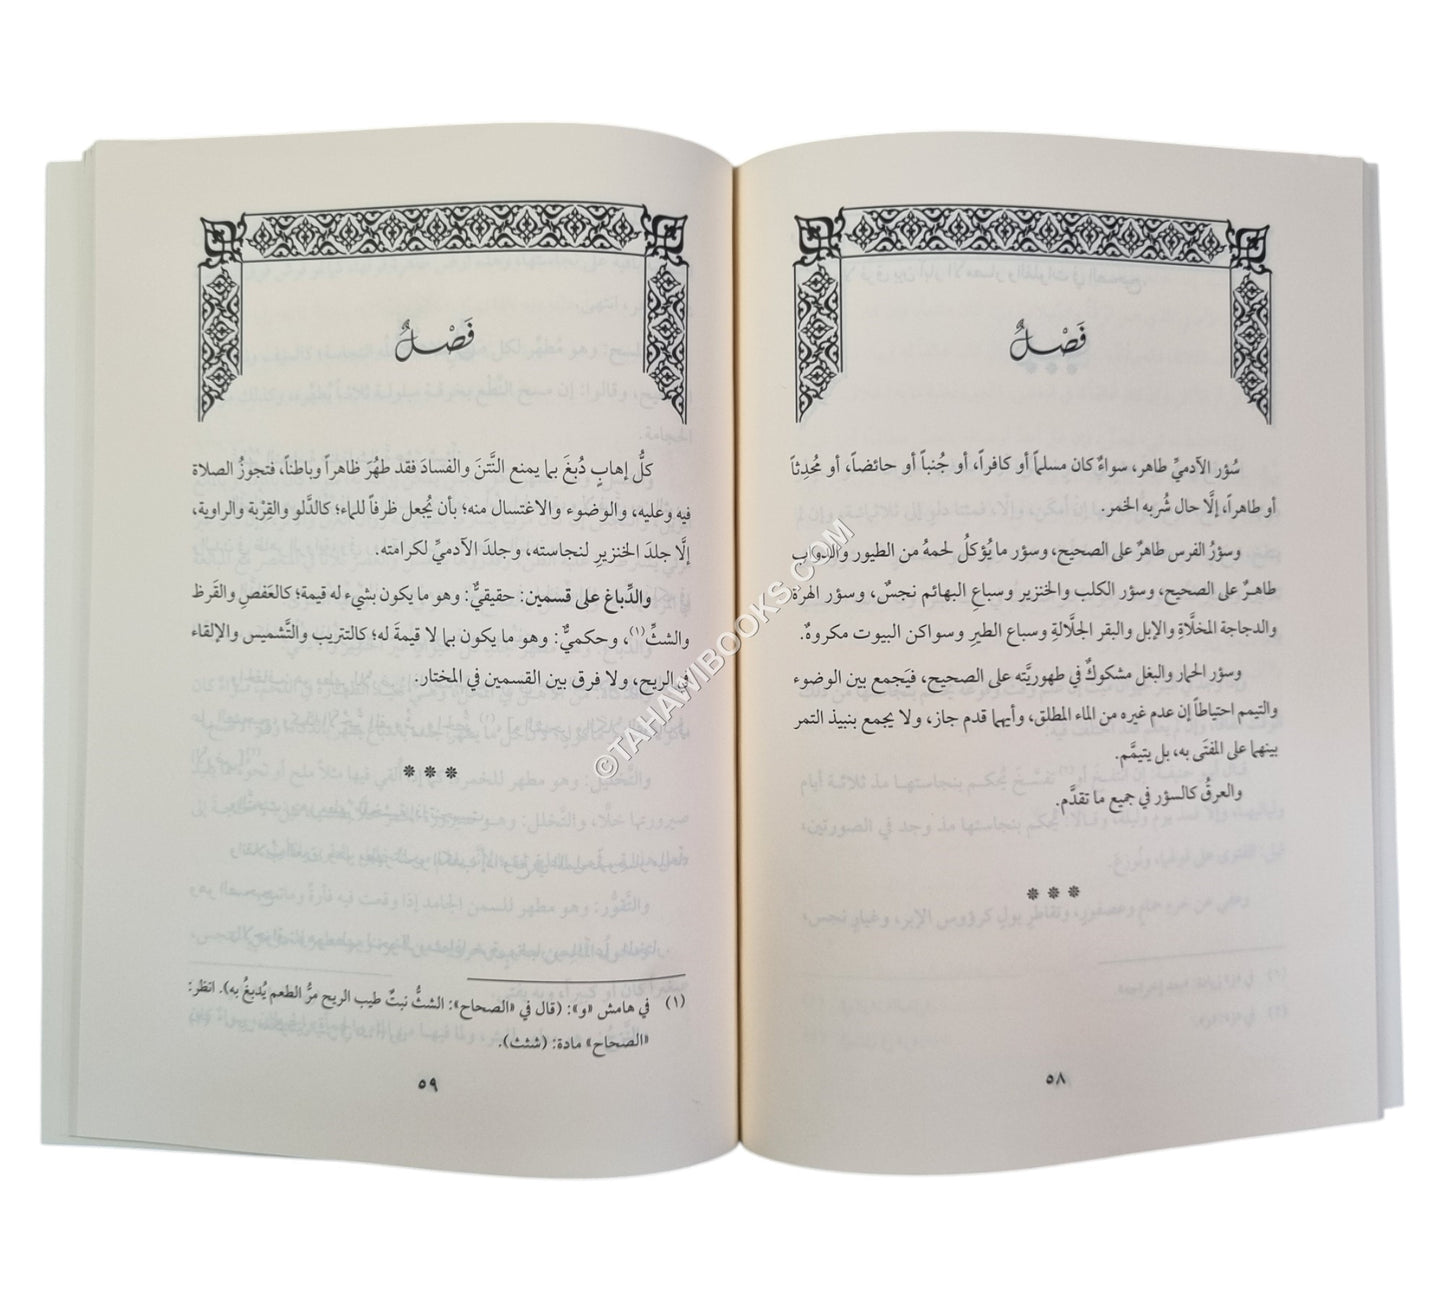 فَصْلٌ
سُؤر الآدميِّ طاهر، سواءٌ كان مسلماً أو كافراً، أو جُنباً أو حائضاً، أو مُحدِثاً
أو طاهراً، إلَّا حال شُربه الخمر.
وسؤرُ الفرس طاهرٌ على الصحيح، وسؤر ما يُؤكلُ لحمهُ من الطيور والدواب
طاهـرٌ على الصحيح، وسؤر الكلب والخنزير وسباعِ البهائم نجسٌ، وسؤر الهرة
والدجاجة المخلَّاةِ والإبل والبقر الجلَّالةِ وسباع الطيرِ وسواكن البيوت مكروهٌ.
وسؤر الحمار والبغل مشكوكٌ في طهوريَّته على الصحيح، فيَجمع بين الوضوء
والتيمم احتياطاً إن عدم غيره من الماء المطلق، وأيهما قدم جاز، ولا يجمع بنبيذ التمر
بينهما على المفتَى به، بل يتيمَّم.
والعرقُ كالسؤر في جميع ما تقدَّم.
* * *
٥٨
فَصْلٌ
كلُّ إهابٍ دُبغَ بما يمنع النَّتنَ والفسادَ فقد طهُرَ ظاهراً وباطناً، فتجوزُ الصلاة
فيه وعليه، والوضوء والاغتسال منه؛ بأن يُجعل ظرفاً للماء؛ كالدَّلو والقِرْبة والراوية،
إلَّا جلدَ الخنزيرِ لنجاسته، وجلدَ الآدميِّ لكرامته.
والدِّباغ على قسمين: حقيقيٌّ: وهو ما يكون بشيء له قيمة؛ كالعَفصِ والقَرظ
والشثِّ(١)، وحكميٌّ: وهو ما يكون بما لا قيمةَ له؛ كالتتريب والتَّشميس والإلقاء
في الريح، ولا فرق بين القسمين في المختار.
* * *
(١) في هامش «و»: (قال في «الصحاح»: الشثُّ نبتٌ طيب الريح مرُّ الطعم يُدبغُ به). انظر:
«الصحاح» مادة: (شثث).
٥٩
©TAHAWIBOOKS.COM